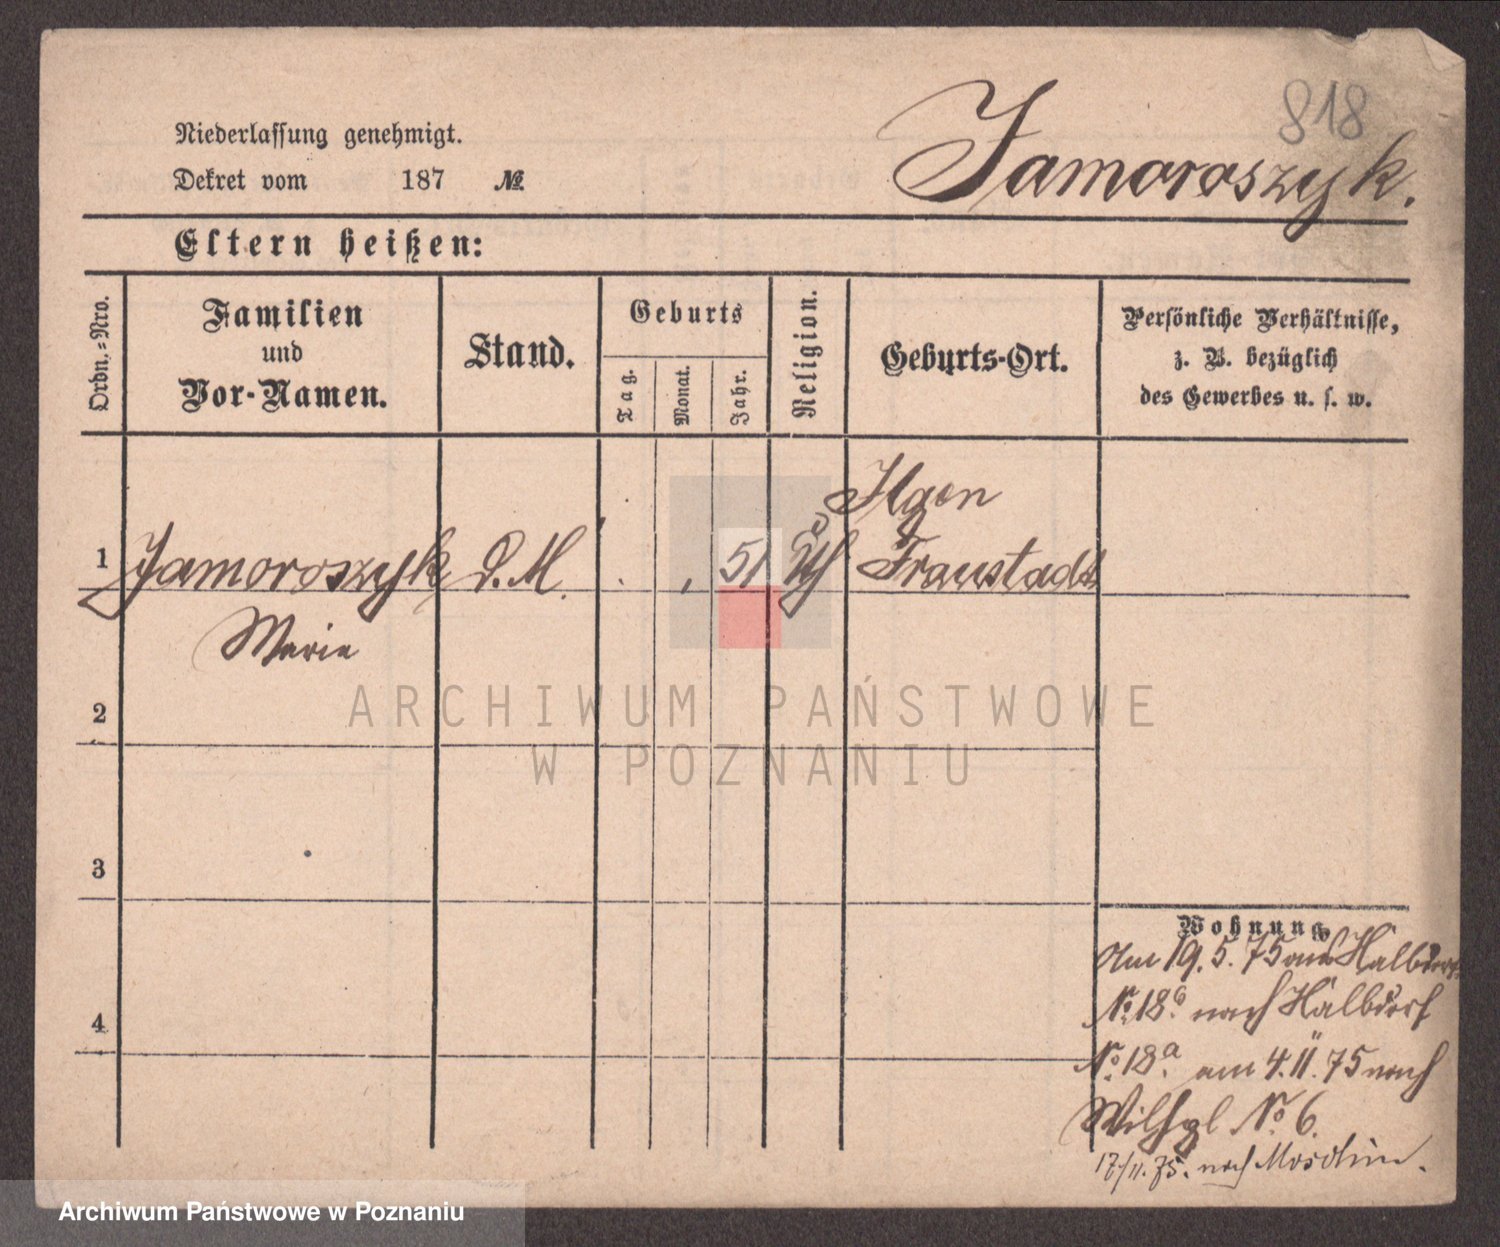 818
Jamoroszyk.
Niederlassung genehmigt.
Dekret vom 187 №
Eltern heißen:
Ordn.=Nro.
Familien
und
Vor-Namen.
Stand.
Geburts
Tag.
Monat.
Jahr.
Religion.
Geburts-Ort.
Persönliche Verhältnisse,
z. B. bezüglich
des Gewerbes u. s. w.
Ilgen
1 Jamoroszyk d. M. 51 Fraustadt
Marie
2
3
4
ARCHIWUM PAŃSTWOWE
W POZNANIU
Wohnung
Am 19.5.75 aus Halbdorf
No 18b. nach Halbdorf
No 18a. am 4.11.75 nach
Wilhpl No 6.
17/11.75. nach Moschin.
Archiwum Państwowe w Poznaniu